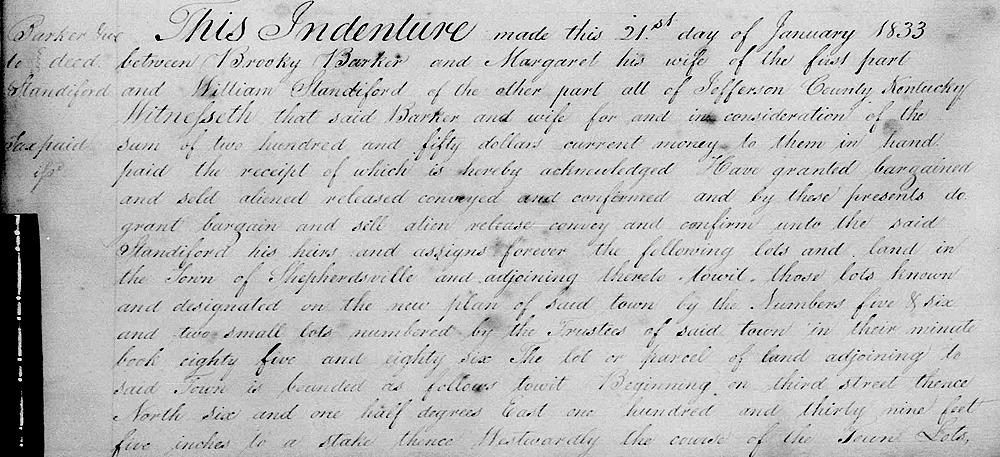 Barker &ux
to } deed
Standiford
Tax paid
This Indenture made this 21.st day of January 1833
between Brooky Barker and Margaret his wife of the first part
and William Standiford of the other part all of Jefferson County Kentucky
Witnesseth that said Barker and wife for and in consideration of the
sum of two hundred and fifty dollars current money to them in hand
paid the receipt of which is hereby acknowledged Have granted bargained
and sold aliened released conveyed and confirmed and by these presents do
grant bargain and sell alien release convey and confirm unto the said
Standiford his heirs and assigns forever the following lots and land in
the Town of Shepherdsville and adjoining thereto towit, those lots known
and designated on the new plan of said town by the Numbers five & six
and two small lots numbered by the Trustees of said town in their minute
book eighty five and eighty six The lot or parcel of land adjoining to
said Town is bounded as follows towit Beginning on third street thence
North six and one half degrees East one hundred and thirty nine feet
five inches to a stake thence Westwardly the course of the Town Lots,